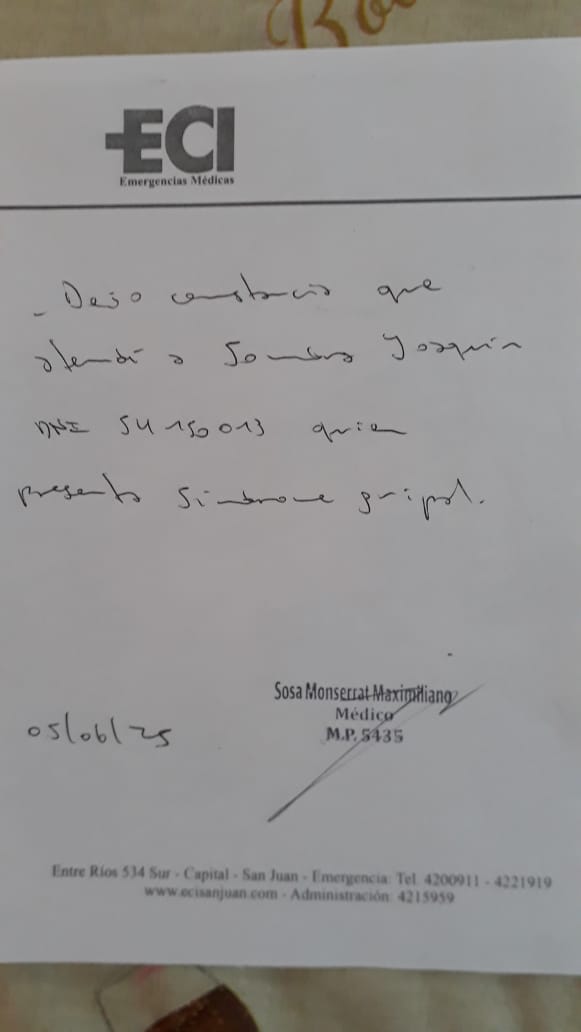 ECI
Emergencias Médicas
- Dejo constancia que
atendí a Joaquín
DNI 54150013 quien
presenta síndrome gripal.
Sosa Monserrat Maximiliano
Médico
M.P. 5435
05/06/25
Entre Ríos 534 Sur - Capital - San Juan - Emergencia: Tel. 4200911 - 4221919
www.ecisanjuan.com - Administración: 4215959